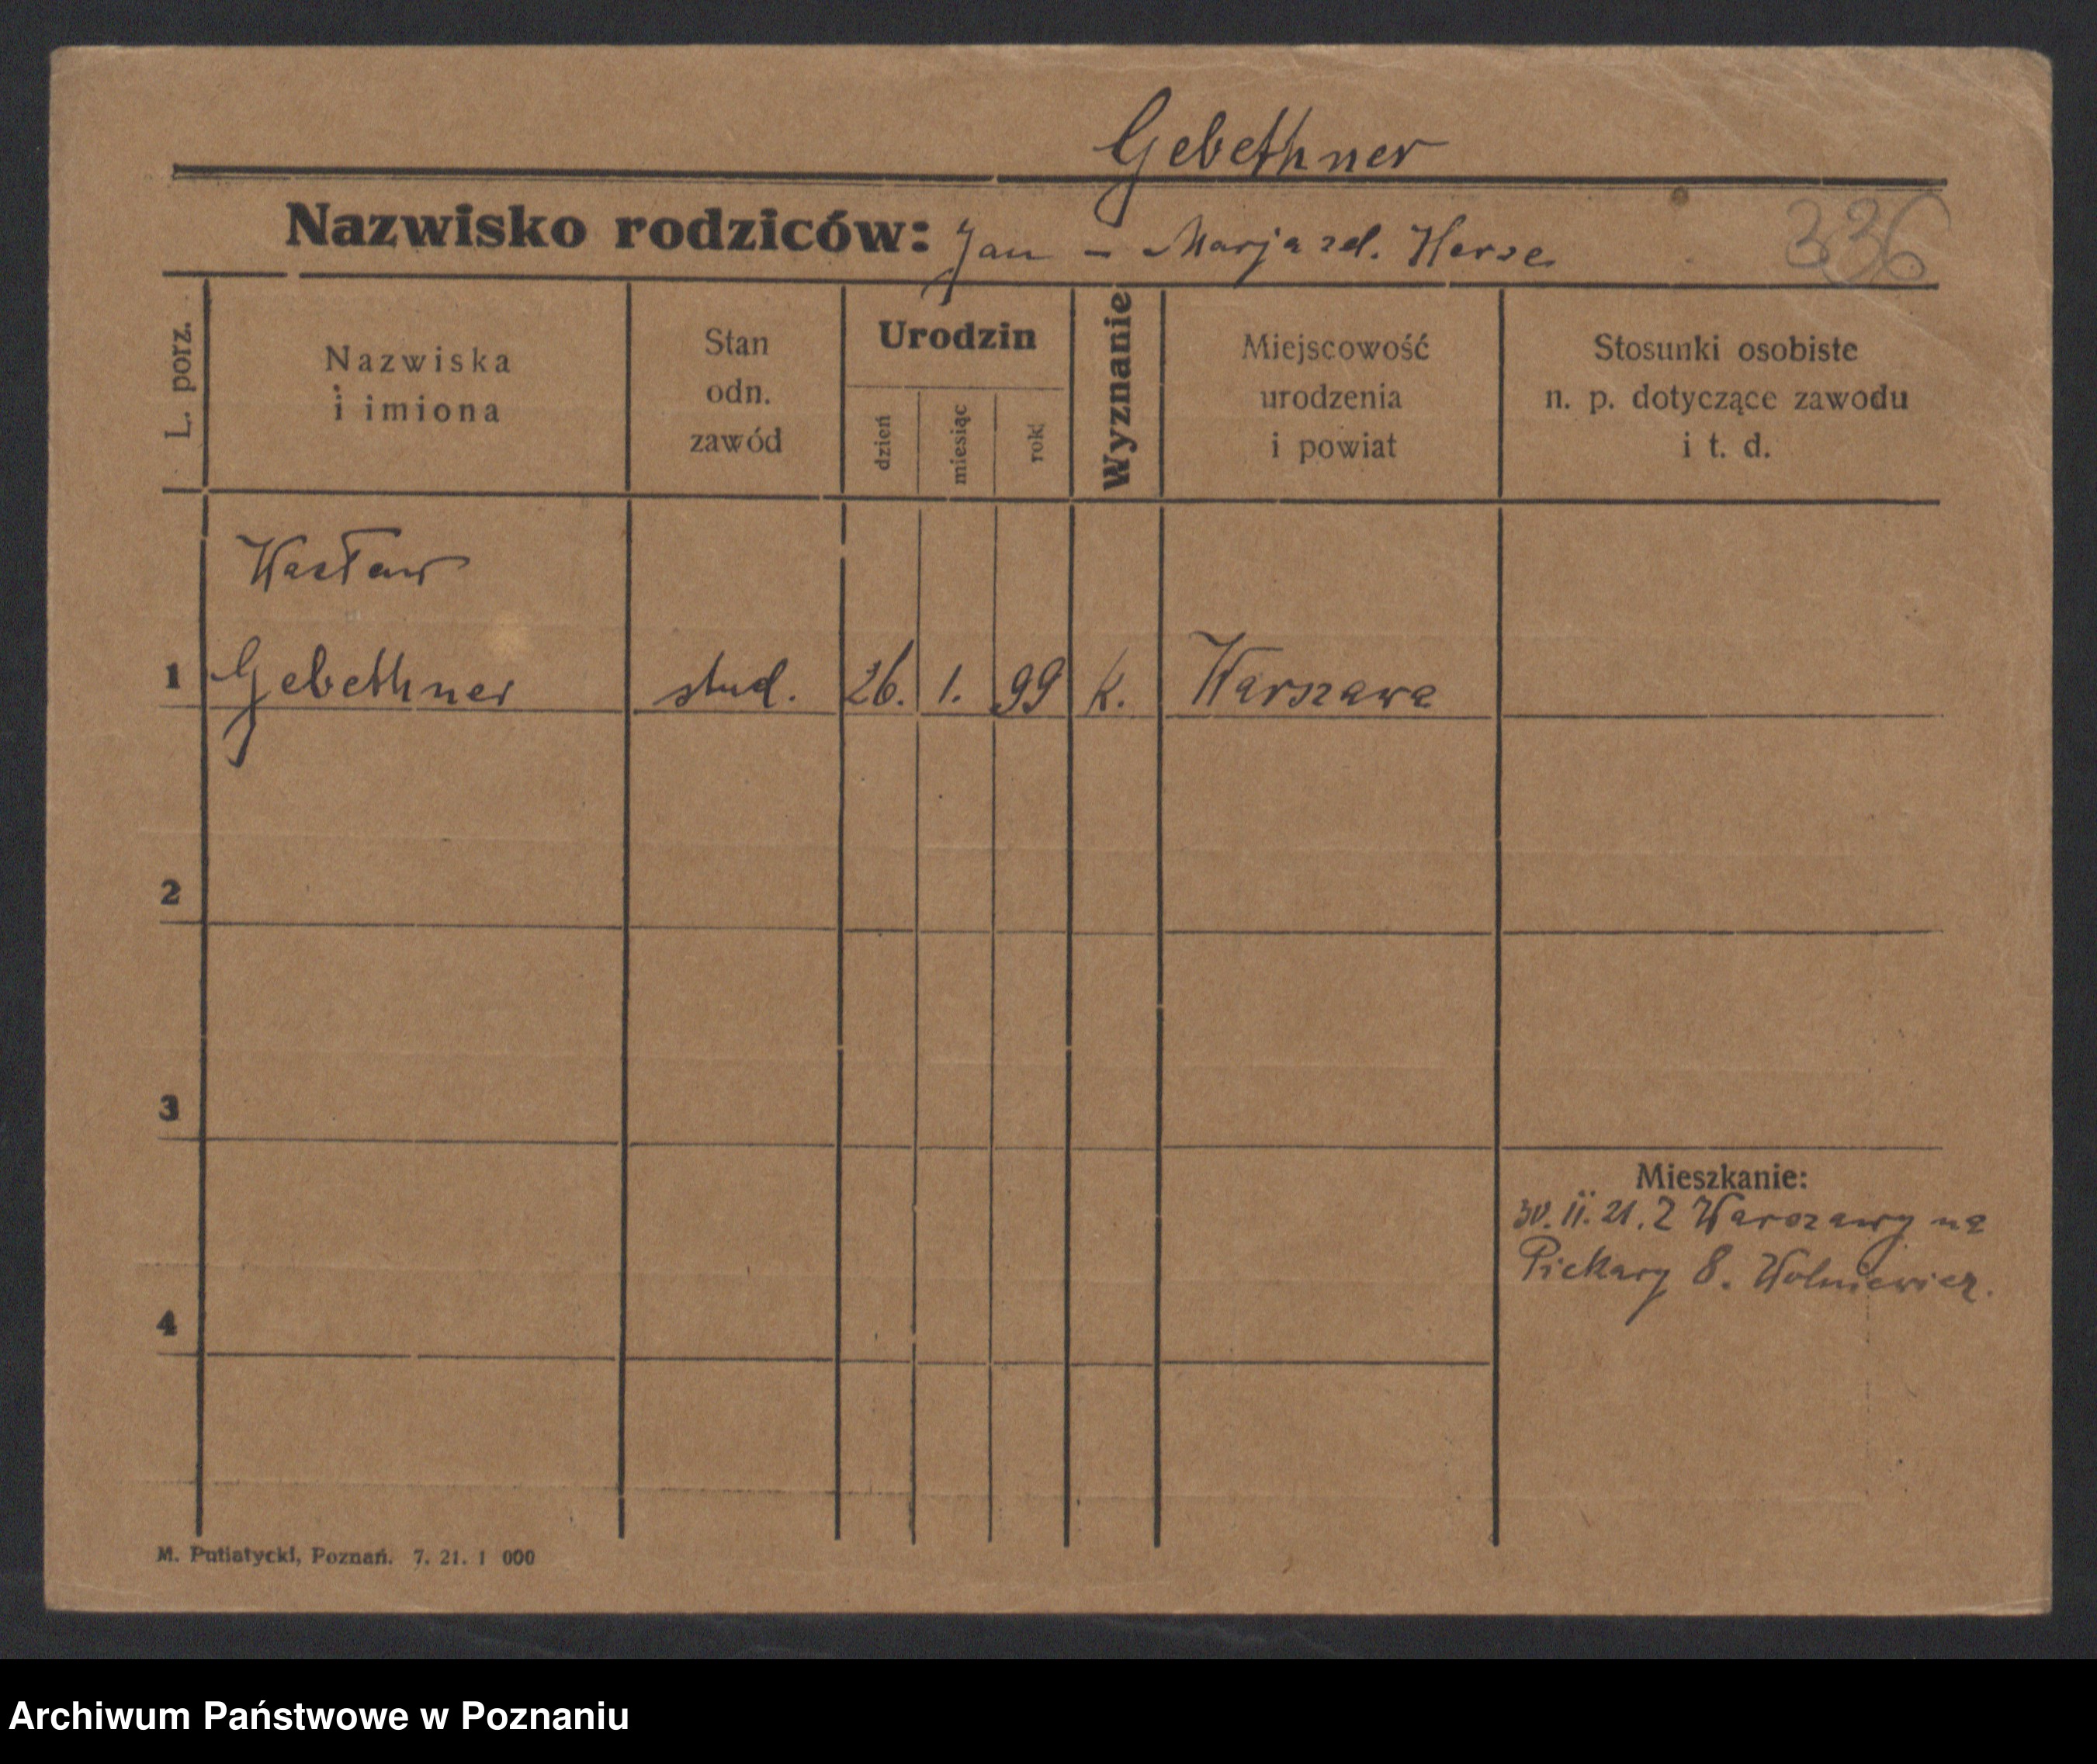 Gebethner
Nazwisko rodziców: Jan – Marja zd. Herse
336
L. porz.
Nazwiska
i imiona
Stan
odn.
zawód
Urodzin
dzień
miesiąc
rok
Wyznanie
Miejscowość
urodzenia
i powiat
Stosunki osobiste
n. p. dotyczące zawodu
i t. d.
Wacław
1 Gebethner stud. 26. 1. 99 k. Warszawa
2
3
Mieszkanie:
30. II. 21. Z Warszawy na
Piekary 8. Wolniewicz.
4
M. Putiatycki, Poznań. 7. 21. 1 000
Archiwum Państwowe w Poznaniu